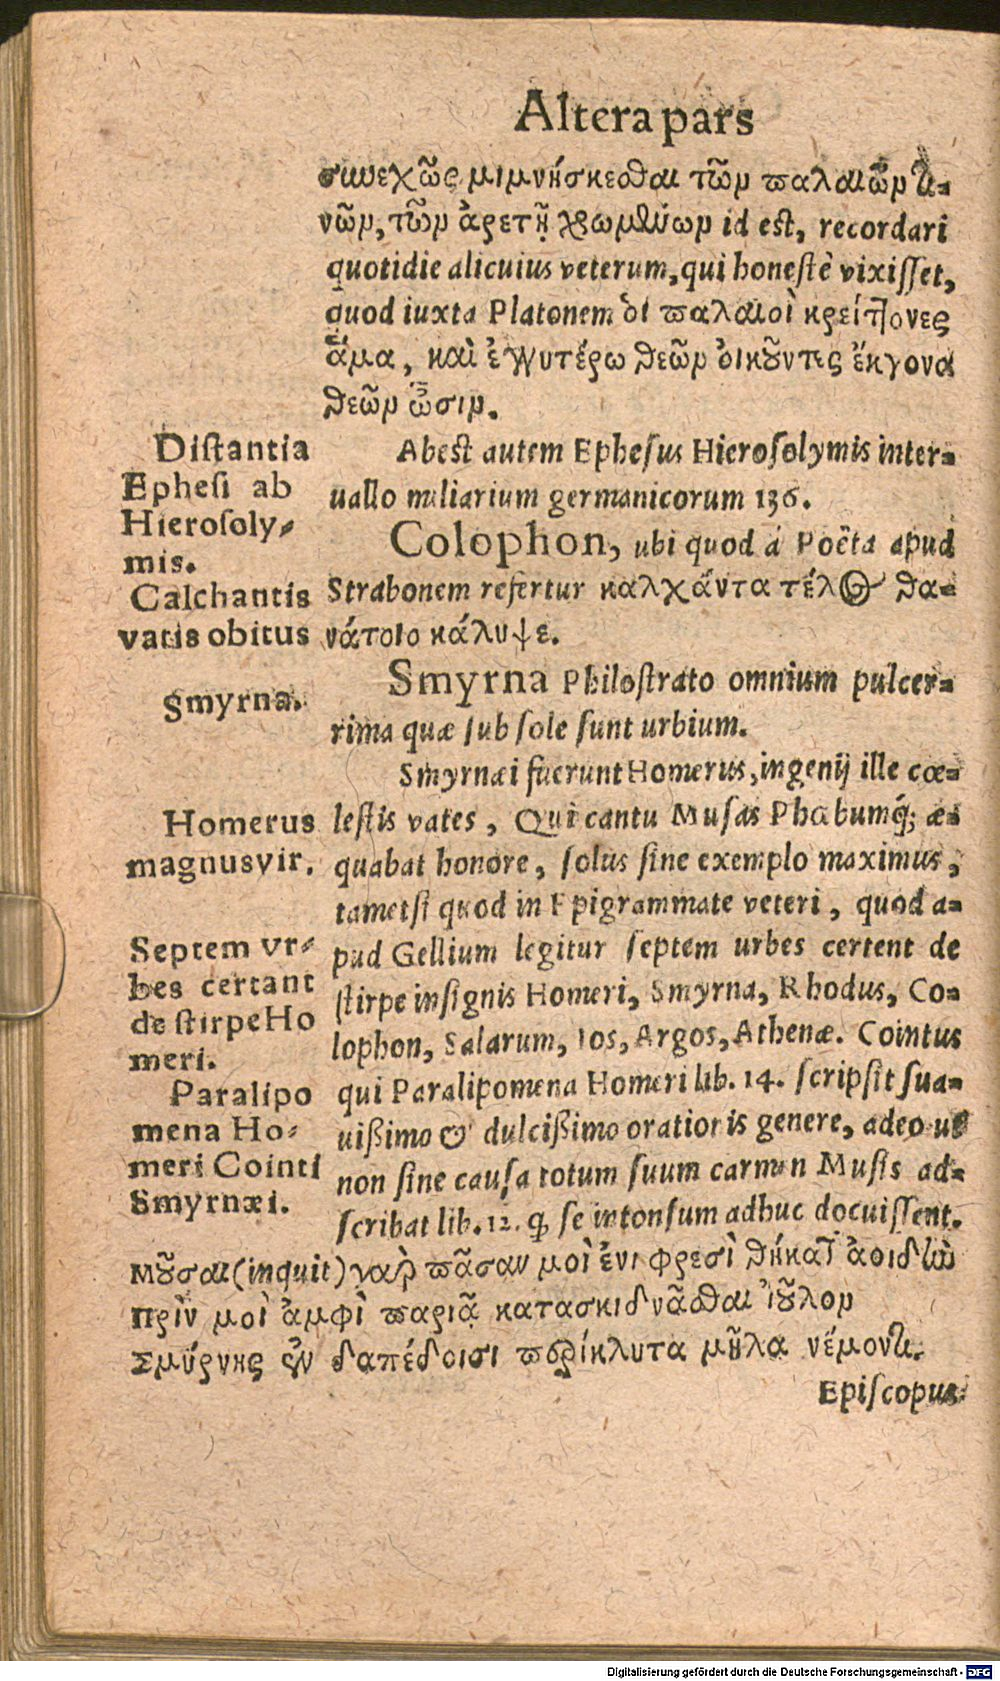 Altera pars
συνεχῶς μιμνήσκεσθαι τῶν παλαιῶν τι-
νῶν, τῶν ἀρετῇ χρωμένων id est, recordari
quotidie alicuius veterum, qui honestè vixisset,
quod iuxta Platonem ὁι παλαιοὶ κρείττονες
ἅμα, καὶ ἐγγυτέρω θεῶν ὀικοῦντες ἔκγονα
θεῶν ὦσιν.
Distantia
Ephesi ab
Hierosoly-
mis.
Abest autem Ephesus Hierosolymis inter-
uallo miliarium germanicorum 136.
Calchantis
vatis obitus
Colophon, ubi quod à Poëta apud
Strabonem refertur καλχάντα τέλος θα-
νάτοιο κάλυψε.
Smyrna.
Smyrna Philostrato omnium pulcer-
rima quæ sub sole sunt urbium.
Homerus
magnus vir.
Smyrnæi fuerunt Homerus, ingenij ille cœ-
lestis vates, Qui cantu Musas Phœbumq́; æ-
quabat honore, solus sine exemplo maximus,
tametsi quod in Epigrammate veteri, quod a-
Septem vr-
bes certant
de stirpe Ho
meri.
pud Gellium legitur septem urbes certent de
stirpe insignis Homeri, Smyrna, Rhodus, Co-
lophon, Salarum, Ios, Argos, Athenæ. Cointus
Paralipo
mena Ho-
meri Cointi
Smyrnæi.
qui Paralipomena Homeri lib. 14. scripsit sua-
uißimo & dulcißimo orationis genere, adeo ut
non sine causa totum suum carmen Musis ad-
scribat lib. 12. q̃ se intonsum adhuc docuissent.
Μοῦσαι (inquit) γὰρ πᾶσαν μοὶ ἐνὶ φρεσὶ θήκατ' ἀοιδὼ
Πρὶν μοὶ ἀμφὶ παριᾷ κατασκιδνᾶσθαι ἰοῦλον
Σμύρνης ἐν δαπέδοισι περίκλυτα μῆλα νέμοντι.
Episcopus
Digitalisierung gefördert durch die Deutsche Forschungsgemeinschaft - DFG